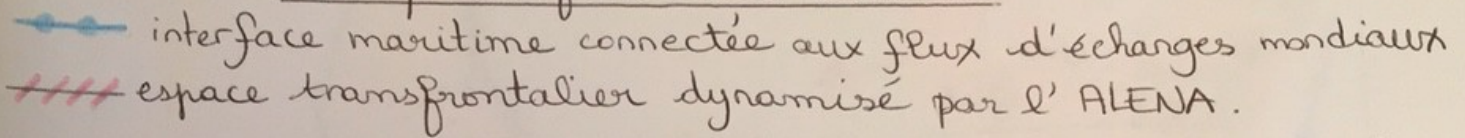 interface maritime connectée aux flux d'échanges mondiaux
espace transfrontalier dynamisé par l'ALENA.